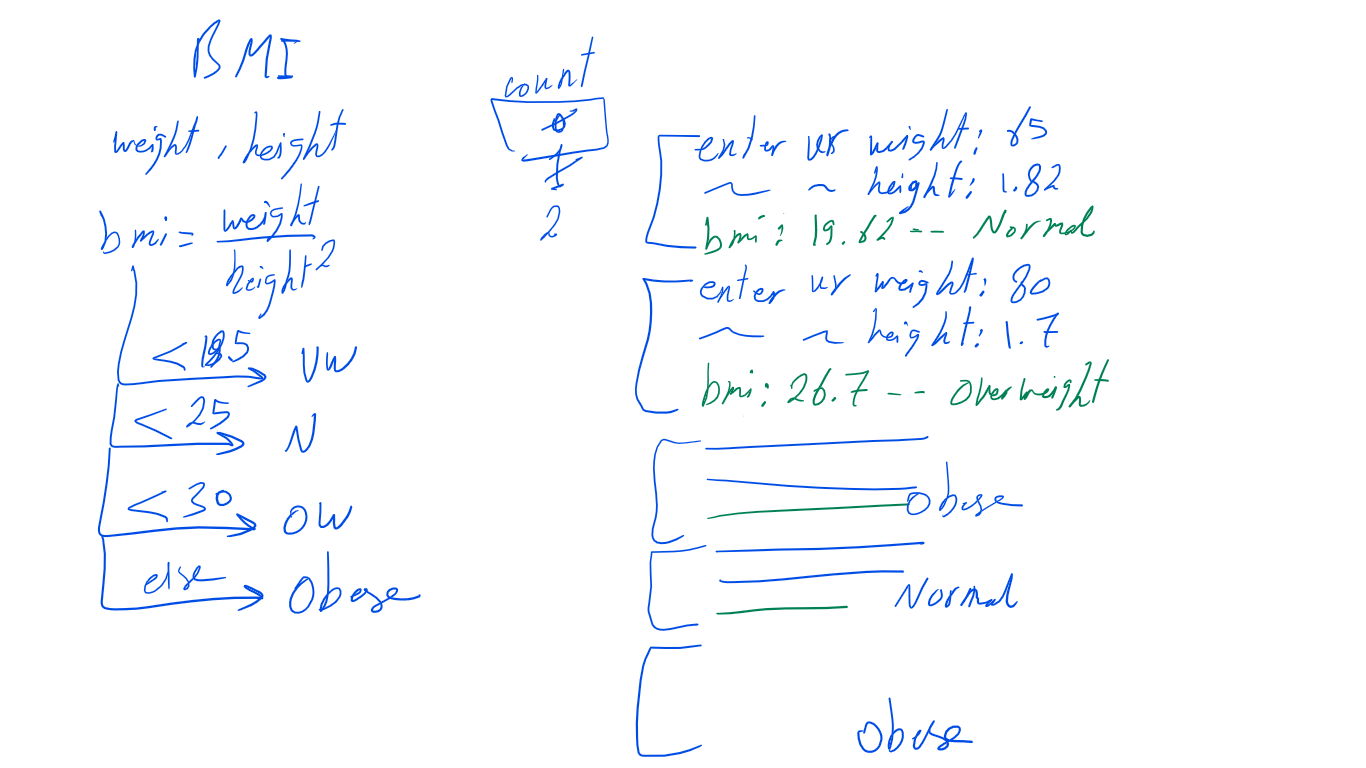 BMI
weight, height
bmi = weight
height²
<18.5 UW
<25 N
<30 OW
else Obese
count
0
1
2
enter ur weight: 65
~ ~ height: 1.82
bmi: 19.62 -- Normal
enter ur weight: 80
~ ~ height: 1.7
bmi: 26.7 -- Overweight
Obese
Normal
Obese